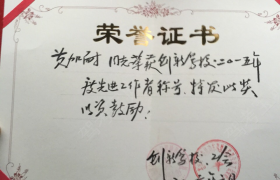 荣誉证书
黄加耐 同志荣获创新学校二〇一五年
度先进工作者称号,特发此奖
以资鼓励。
创新学校工会